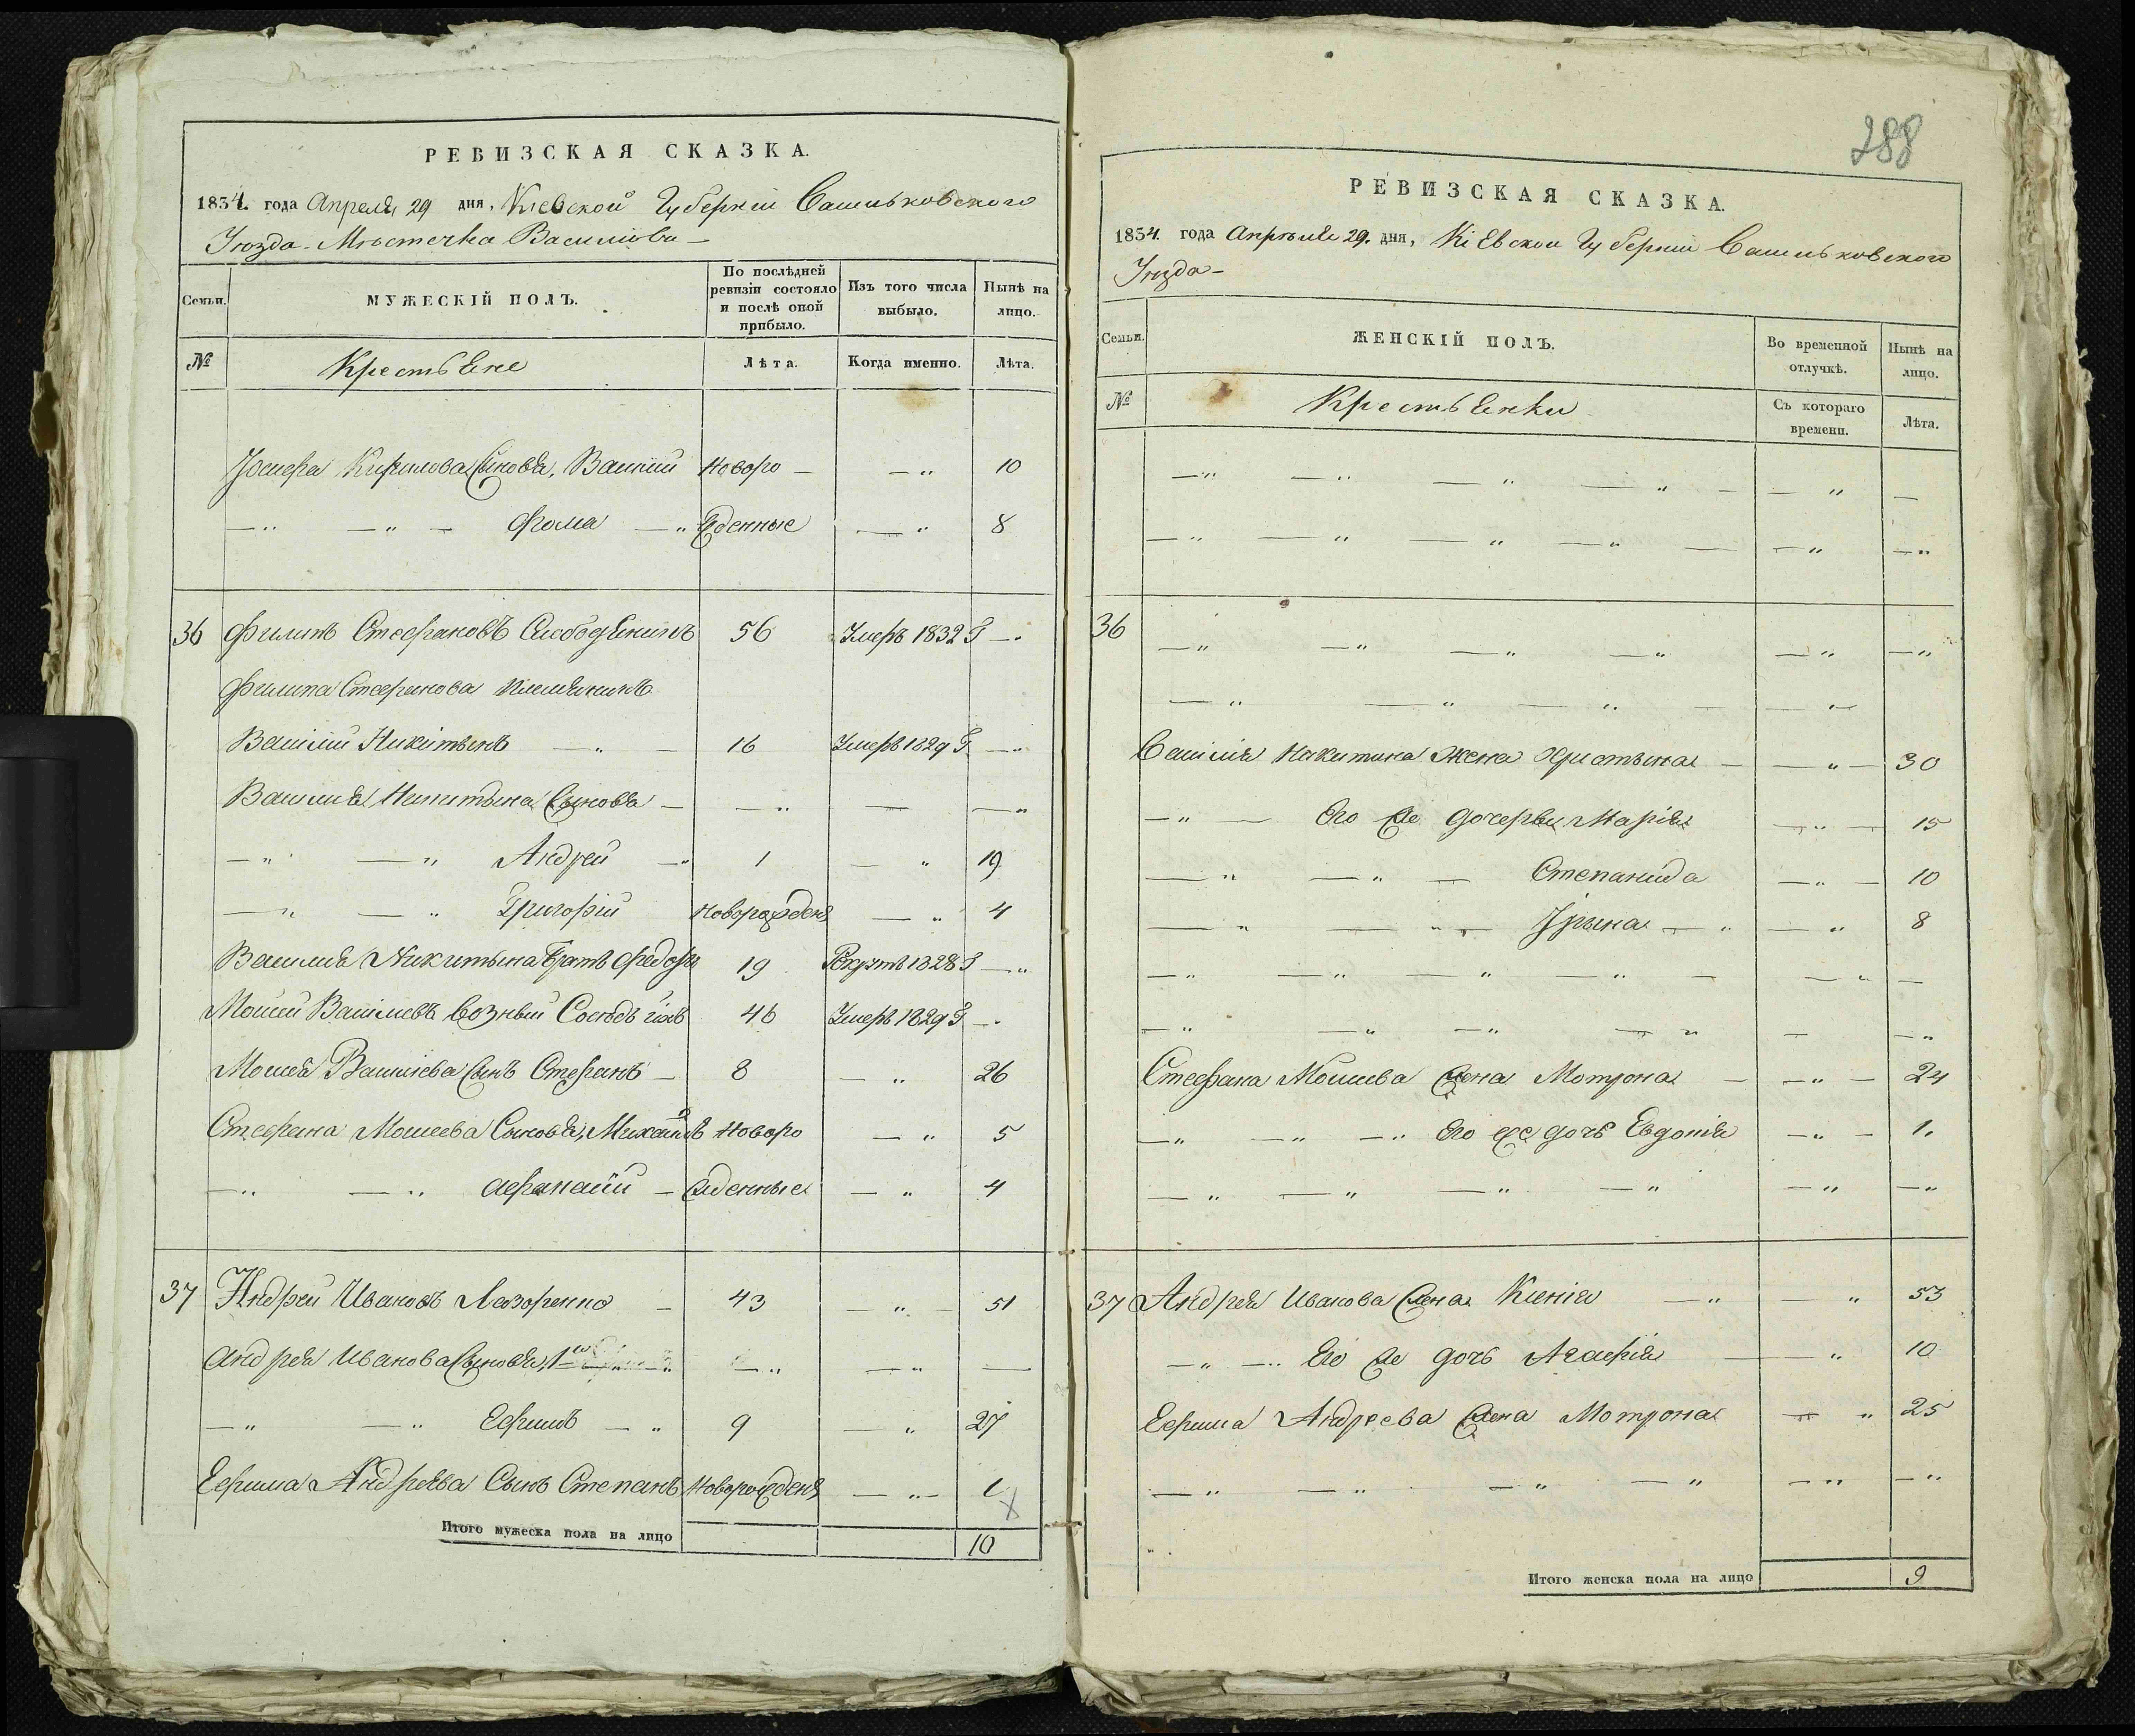 РЕВИЗСКАЯ СКАЗКА.
1834. года Апреля 29 дня, Киевской Губернии Васильковского
Уезда - Мѣстечка Василиова —
Семьи. МУЖЕСКІЙ ПОЛЪ. По послѣдней ревизіи состояло и послѣ оной прибыло. Изъ того числа выбыло. Нынѣ на лицо.
№ Крестьяне Лѣта. Когда именно. Лѣта.
Кирилова Сыновья, Василий Новоро — — " 10
— " — " — Фома — " жденные — " 8
36 Филипъ Стефановъ 56 Умеръ 1832 Г — "
Филипа Стефанова племяникъ
Василий Никитынъ — " — 16 Умеръ 1829 Г — "
Василия Никитына Сыновья — — " — — "
— " — " Андрей — " 1 — " 19
— " — " Григорий Новорожденъ — " 4
Василия Никитына Братъ Федоръ 19 Рекрутъ 1828 Г — "
Мосий Василиевъ Возный Сосѣдъ ихъ 46 Умеръ 1829 Г — "
Мосия Василиева Сынъ Стефанъ — 8 — " 26
Стефана Мосиева Сыновья, Михаилъ Новоро — " 5
— " — " Афанасий — жденные — " 4
37 Андрей Ивановъ Лазоренко — 43 — " — 51
Андрея Иванова Сыновья, 1й — " — " —
— " — " Ефимъ — " 9 — " 27
Ефима Андреева Сынъ Степанъ Новорожденъ — " — 1
Итого мужеска пола на лицо 10
288
РЕВИЗСКАЯ СКАЗКА.
1834. года Апрѣля 29. дня, Кіевской Губернии Васильковского
Уезда —
Семьи. ЖЕНСКІЙ ПОЛЪ. Во временной отлучкѣ. Нынѣ на лицо.
№ Крестьянки Съ котораго времени. Лѣта.
— " — " — " — " — — " —
— " — " — " — " — — " — "
36 — " — " — " — " — " — "
— " — " — " — — " —
Василия Никитина Жена Христына — — " — 30
— " — Его же дочеры Мария — " — 15
— " — " — Степанида — " — 10
— " — " — Ирына — " — " 8
— " — " — " — " — — " —
— " — " — " — " — — "
Стефана Мосиева жена Мотрона — — " — 24
— " — " — " Его же дочь Евдокия — " — 1.
— " — " — " — " — " — "
37 Андрея Иванова жена Ксения — " — " 53
— " — " Его же дочь Агафия — — " 10
Ефима Андреева жена Мотрона — " 25
— " — " — " — " — " — "
Итого женска пола на лицо 9